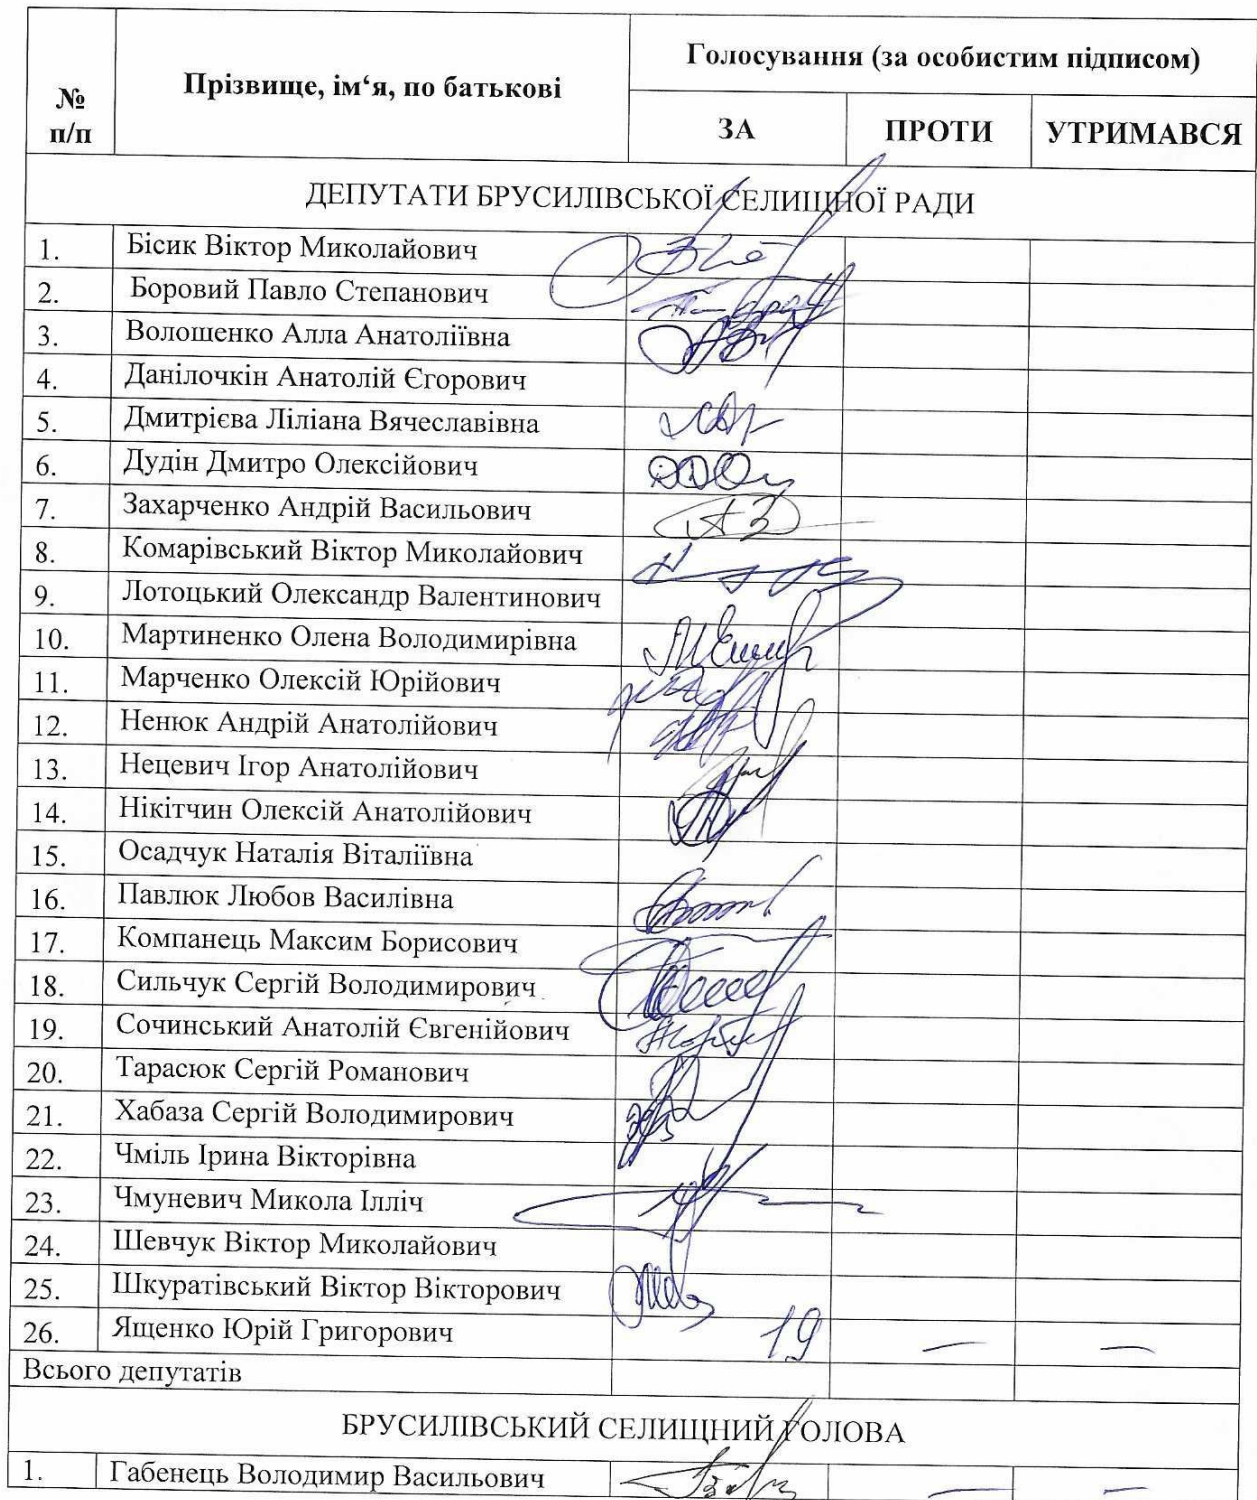 № п/п Прізвище, ім‘я, по батькові Голосування (за особистим підписом)
ЗА ПРОТИ УТРИМАВСЯ
ДЕПУТАТИ БРУСИЛІВСЬКОЇ СЕЛИЩНОЇ РАДИ
1. Бісик Віктор Миколайович
2. Боровий Павло Степанович
3. Волошенко Алла Анатоліївна
4. Данілочкін Анатолій Єгорович
5. Дмитрієва Ліліана Вячеславівна
6. Дудін Дмитро Олексійович
7. Захарченко Андрій Васильович
8. Комарівський Віктор Миколайович
9. Лотоцький Олександр Валентинович
10. Мартиненко Олена Володимирівна
11. Марченко Олексій Юрійович
12. Ненюк Андрій Анатолійович
13. Нецевич Ігор Анатолійович
14. Нікітчин Олексій Анатолійович
15. Осадчук Наталія Віталіївна
16. Павлюк Любов Василівна
17. Компанець Максим Борисович
18. Сильчук Сергій Володимирович
19. Сочинський Анатолій Євгенійович
20. Тарасюк Сергій Романович
21. Хабаза Сергій Володимирович
22. Чміль Ірина Вікторівна
23. Чмуневич Микола Ілліч
24. Шевчук Віктор Миколайович
25. Шкуратівський Віктор Вікторович
26. Ященко Юрій Григорович 19 — —
Всього депутатів
БРУСИЛІВСЬКИЙ СЕЛИЩНИЙ ГОЛОВА
1. Габенець Володимир Васильович — —